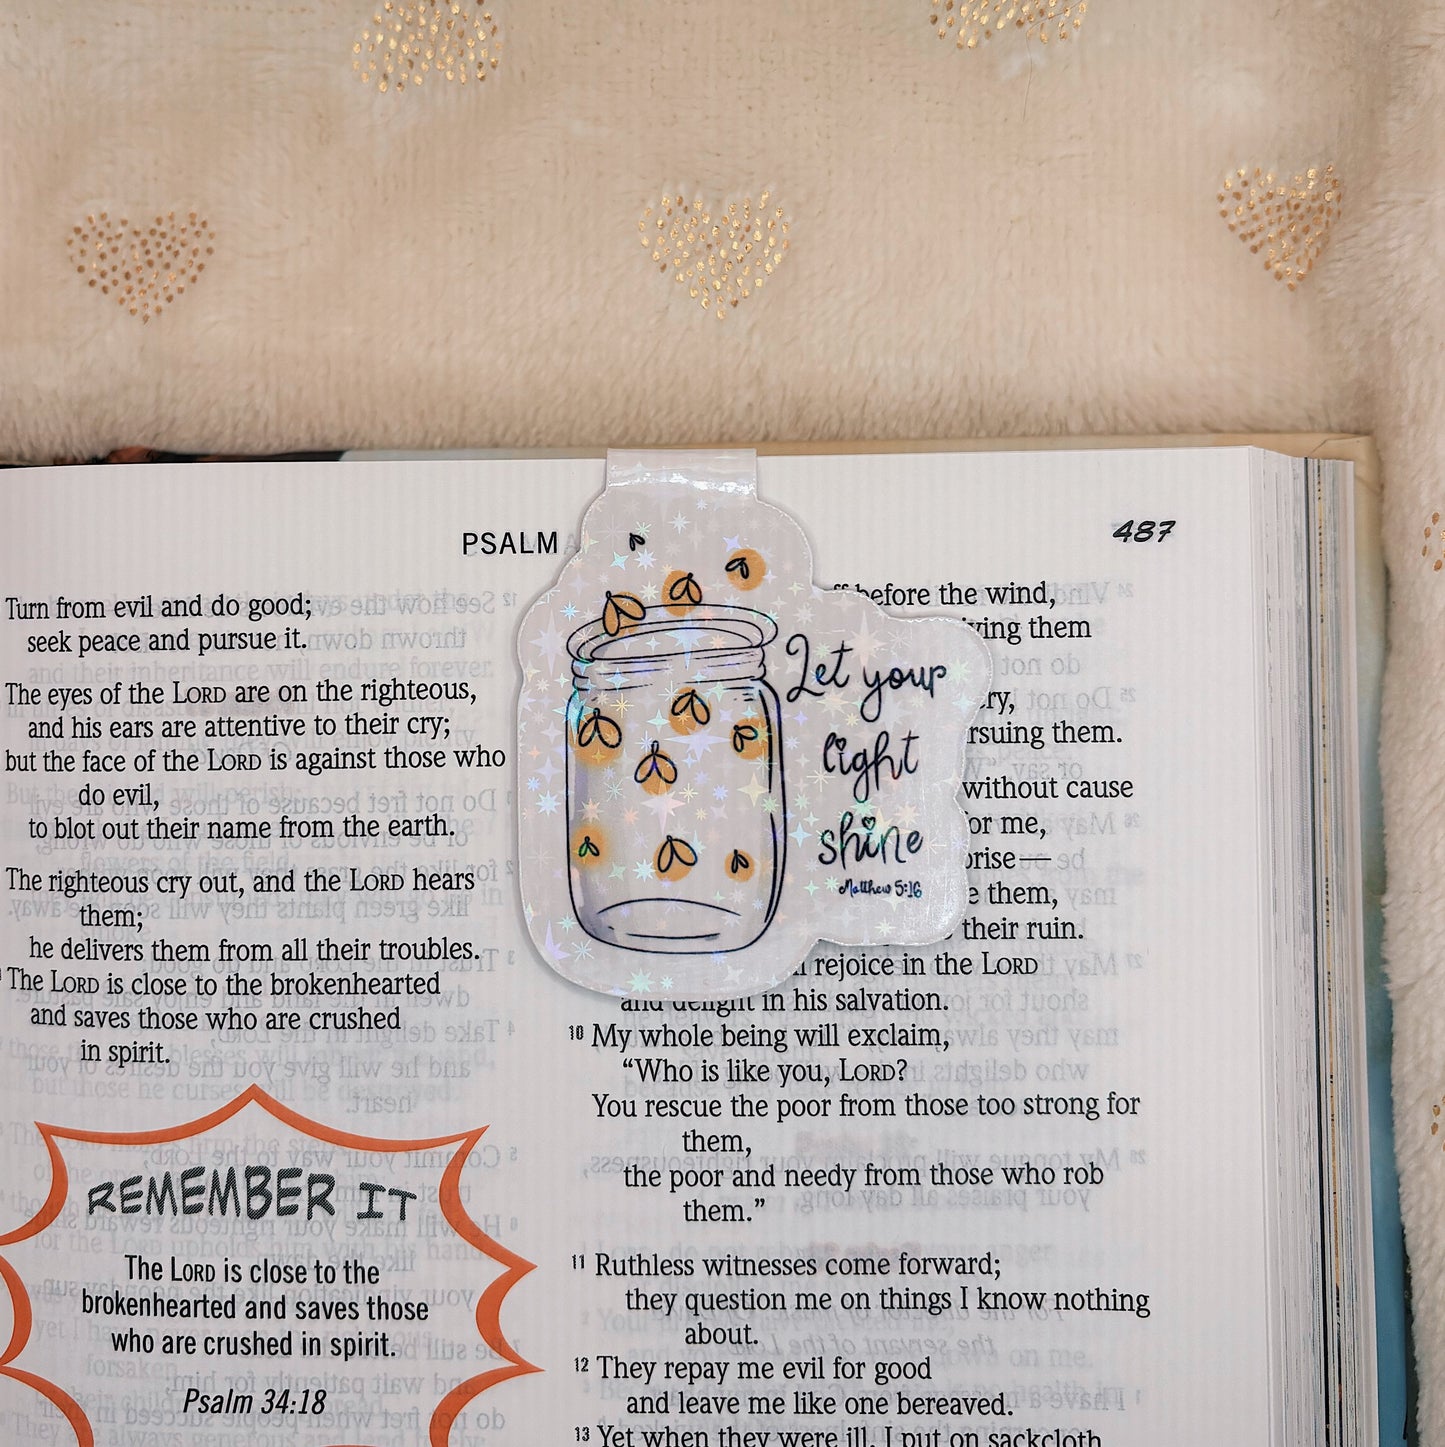 PSALM
487
Turn from evil and do good;
seek peace and pursue it.
The eyes of the LORD are on the righteous,
and his ears are attentive to their cry;
but the face of the LORD is against those who
do evil,
to blot out their name from the earth.
The righteous cry out, and the LORD hears
them;
he delivers them from all their troubles.
The LORD is close to the brokenhearted
and saves those who are crushed
in spirit.
REMEMBER IT
The LORD is close to the
brokenhearted and saves those
who are crushed in spirit.
Psalm 34:18
Let your
light
shine
Matthew 5:16
before the wind,
them
them.
without cause
me,
them,
their ruin.
rejoice in the LORD
and delight in his salvation.
10 My whole being will exclaim,
“Who is like you, LORD?
You rescue the poor from those too strong for
them,
the poor and needy from those who rob
them.”
11 Ruthless witnesses come forward;
they question me on things I know nothing
about.
12 They repay me evil for good
and leave me like one bereaved.
13 Yet when they were ill, I put on sackcloth